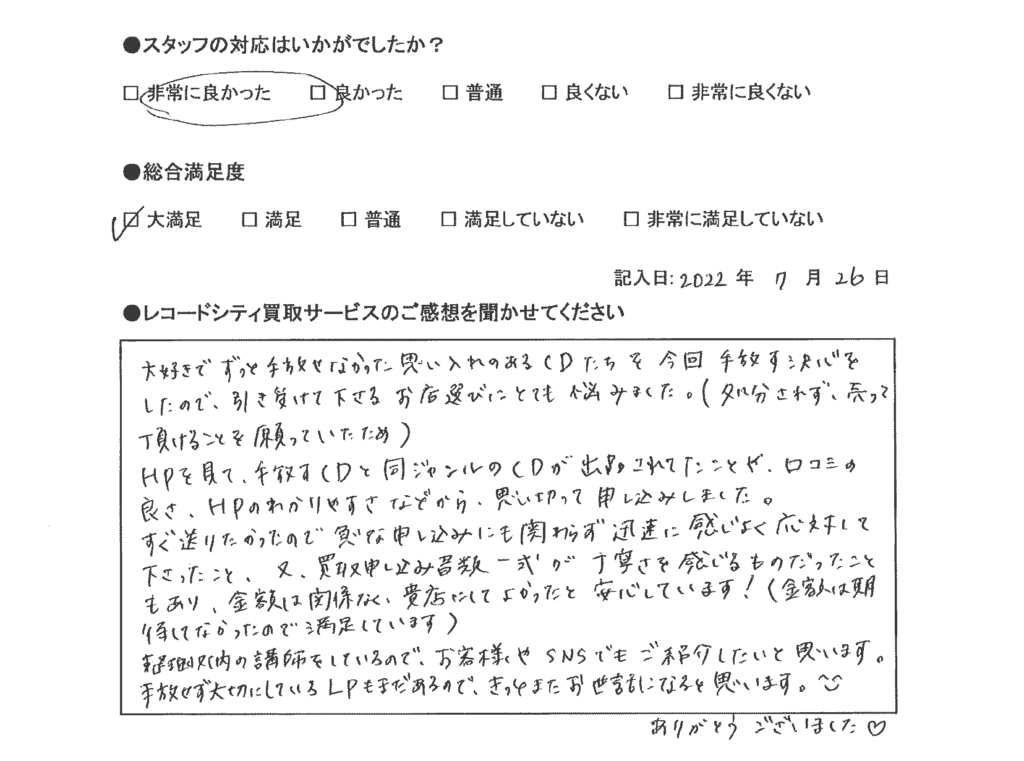 ●スタッフの対応はいかがでしたか？
□ 非常に良かった □ 良かった □ 普通 □ 良くない □ 非常に良くない
●総合満足度
□ 大満足 □ 満足 □ 普通 □ 満足していない □ 非常に満足していない
記入日: 2022 年 7 月 26 日
●レコードシティ買取サービスのご感想を聞かせてください
大好きでずっと手放せなかった思い入れのあるCDたちを今回手放す決心を
したので、引き受けて下さるお店選びにとても悩みました。(処分されず、売って
頂けることを願っていたため)
HPを見て、手放すCDと同ジャンルのCDが出品されてたことや、口コミの
良さ、HPのわかりやすさなどから、思い切って申し込みしました。
すぐ送りたかったので急な申し込みにも関わらず迅速に感じよく応対して
下さったこと、又、買取申し込み書類一式が丁寧さを感じるものだったこと
もあり、金額は関係なく、貴店にしてよかったと安心しています!(金額は期
待してなかったので満足しています)
の講師をしているので、お客様やSNSでもご紹介したいと思います。
手放せず大切にしているLPもまだあるので、きっとまたお世話になると思います。
ありがとうございました♡